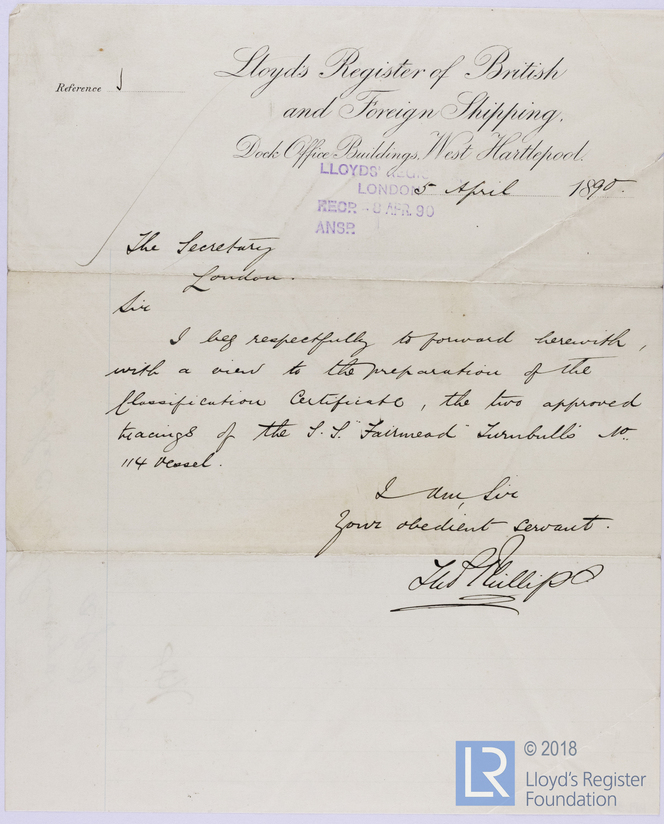 Lloyd's Register of British
and Foreign Shipping.
Reference J
Dock Office Buildings, West Hartlepool.
LLOYDS' REGIS
LONDON
5 April 1890.
RECR - 8 APR. 90
ANSR
The Secretary
London.
Sir
I beg respectfully to forward herewith,
with a view to the preparation of the
Classification Certificate, the two approved
tracings of the S.S. "Fairmead" Turnbull's No.
114 Vessel.
I am, Sir
Your obedient servant.
Tho Phillips
© 2018
LR
Lloyd's Register
Foundation